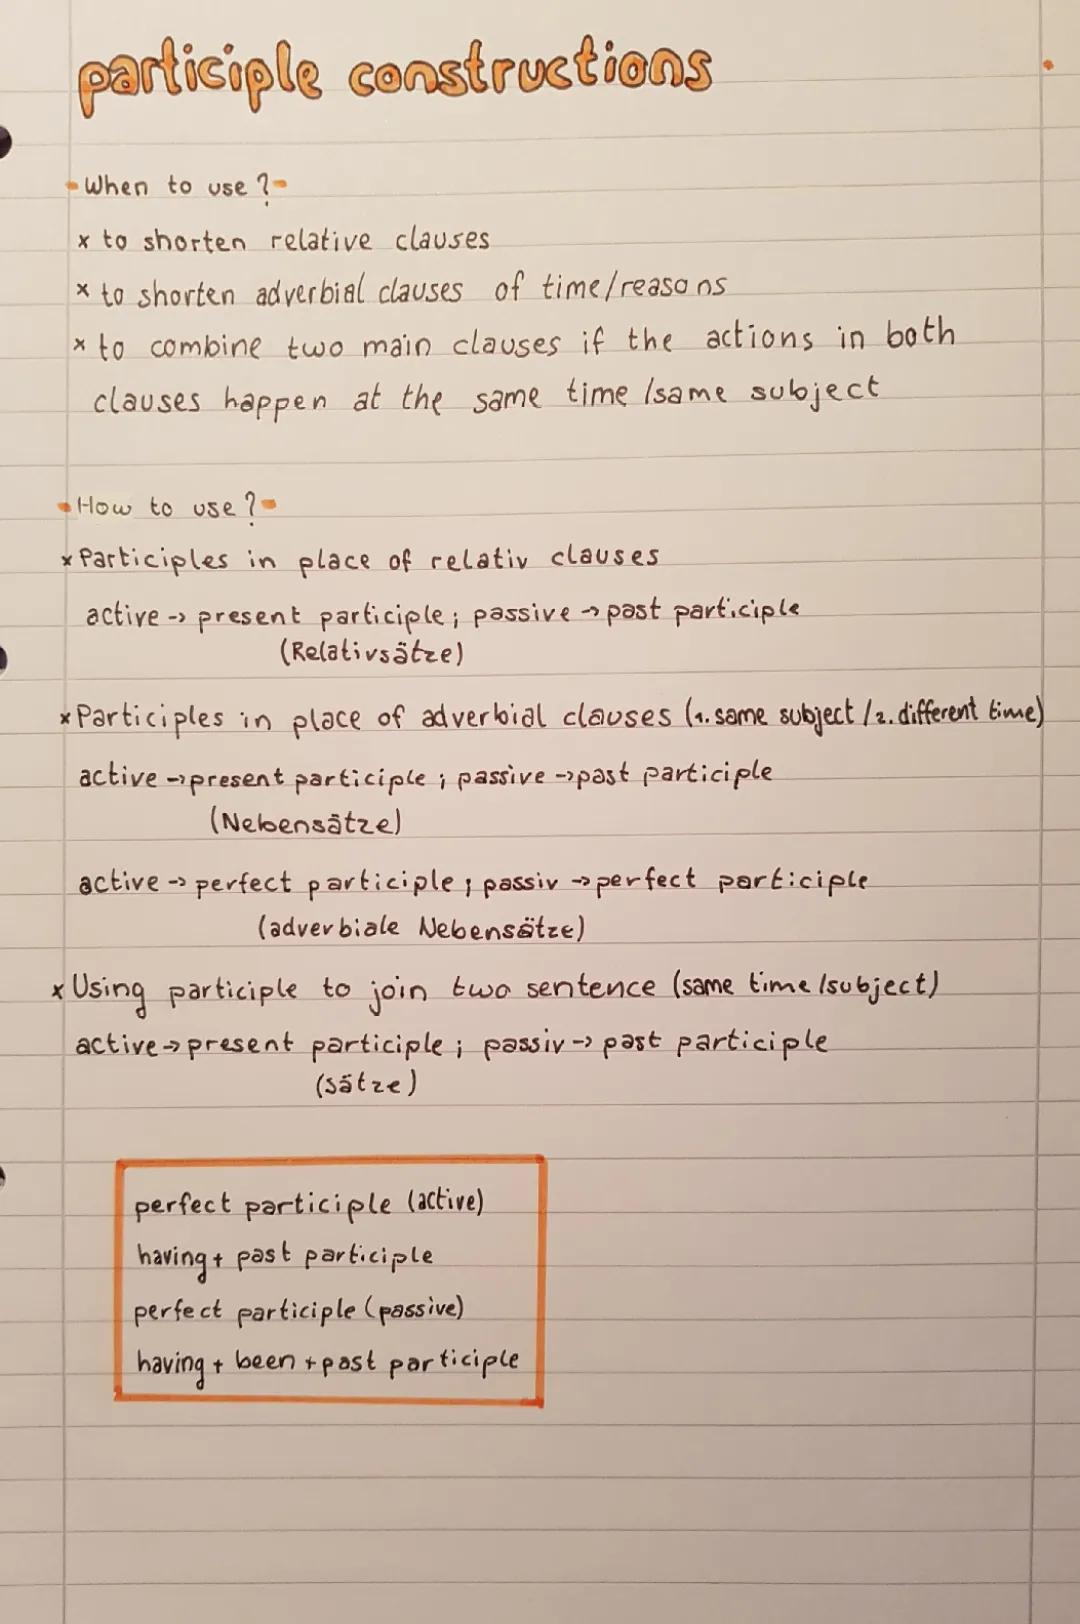 participle constructions
- When to use? -
x to shorten relative clauses
x to shorten adverbial clauses of time/reasons
x to combine two main clauses if the actions in both
clauses happen at the same time /same subject
- How to use? -
x Participles in place of relativ clauses
active -> present participle; passive -> past participle
(Relativsätze)
x Participles in place of adverbial clauses (1. same subject / 2. different time)
active -> present participle ; passive -> past participle
(Nebensätze)
active -> perfect participle ; passiv -> perfect participle
(adverbiale Nebensätze)
x Using participle to join two sentence (same time /subject)
active -> present participle ; passiv -> past participle
(sätze)
perfect participle (active)
having + past participle
perfect participle (passive)
having + been + past participle